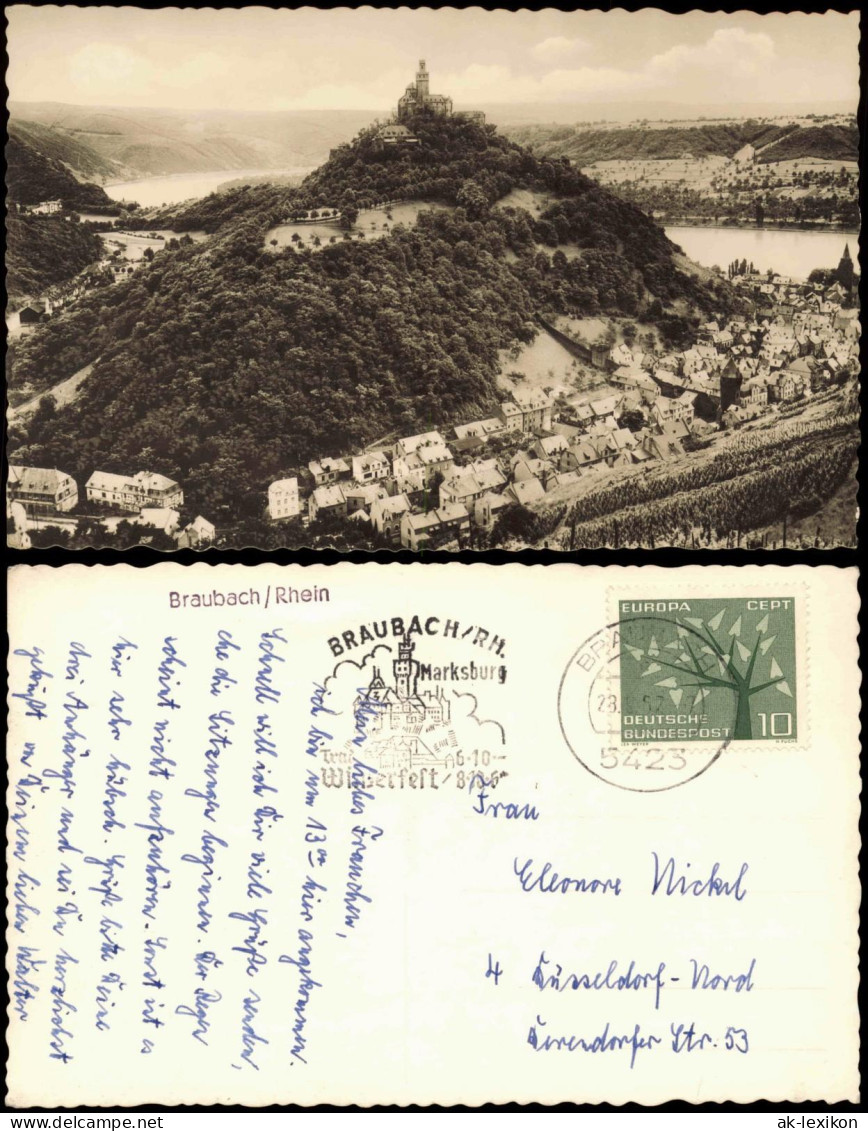 Braubach/Rhein
BRAUBACH/RH.
Marksburg
Winzerfest
6.10.-
8.10.6
5423
EUROPA CEPT
DEUTSCHE
BUNDESPOST 10
Mein liebes Frauchen,
ich bin um 13 Uhr hier angekommen.
Schnell will ich Dir viele Grüße senden,
ehe die Sitzungen beginnen. Der Regen
scheint nicht aufzuhören. Sonst ist es
hier sehr hübsch. Grüße bitte Deine
drei Anhänger und sei Du herzlichst
geküßt von Deinem lieben Walter
Frau
Eleonore Nickel
4 Düsseldorf-Nord
Derendorfer Str. 53
ak-lexikon